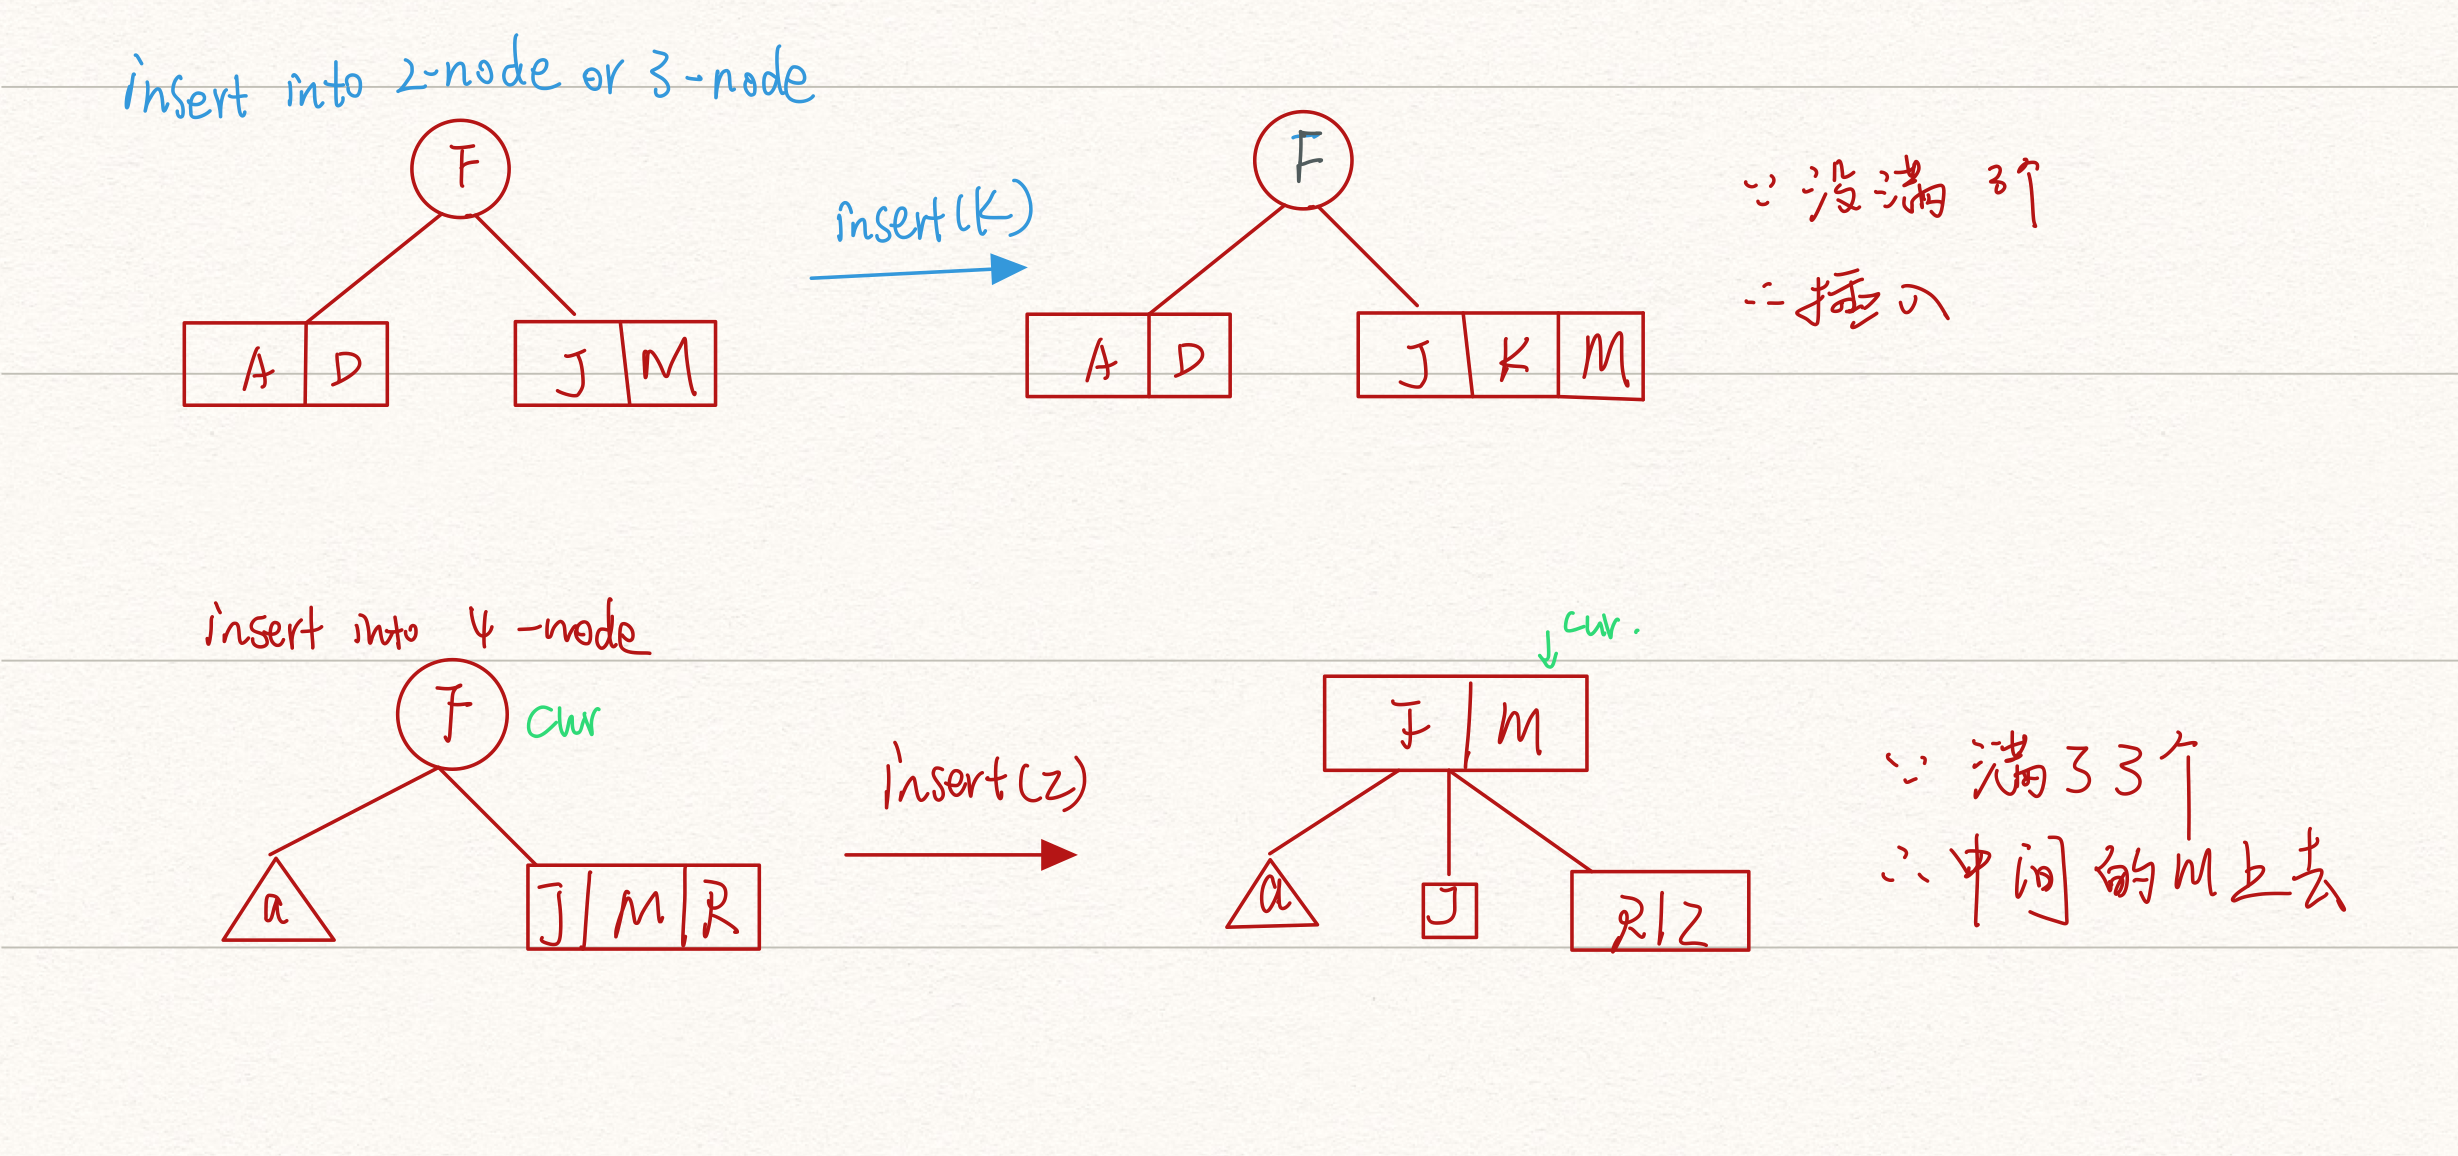 insert into 2-node or 3-node
F
A D
J M
insert(K)
F
A D
J K M
∵ 没满 3个
∴ 插入
insert into 4-node
F cur
a
J M R
insert(Z)
cur.
F M
a
J
R Z
∵ 满了3个
∴ 中间的M上去